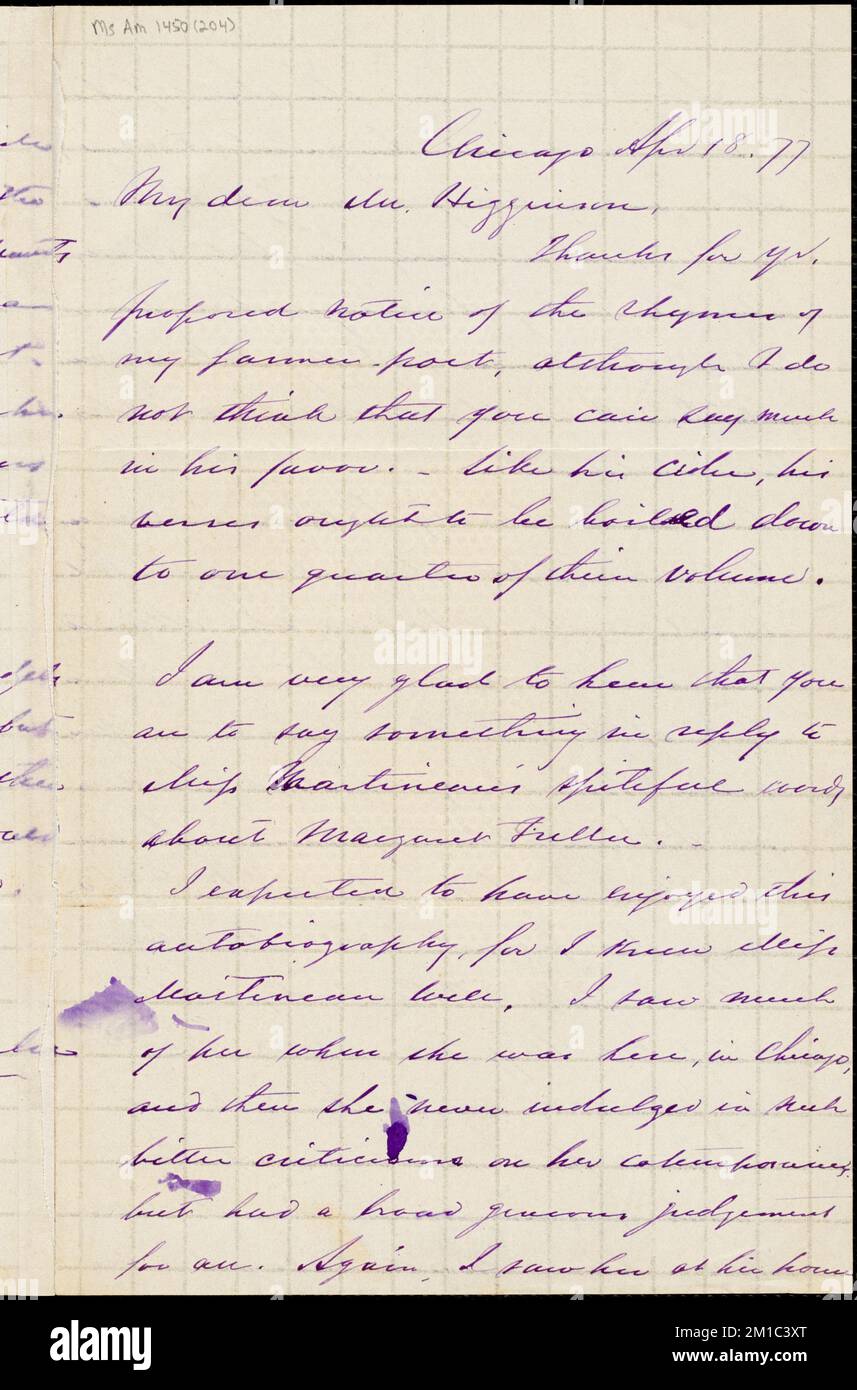 Ms Am 1450 (204)
Chicago Apr 18. 77
My dear Mr. Higginson,
Thanks for yr.
proposed notice of the rhymes of
my farmer-poet, although I do
not think that you can say much
in his favor. – Like his cider, his
verses ought to be boiled down
to one quarter of their volume.
I am very glad to hear that you
are to say something in reply to
Miss Martineau's spiteful words
about Margaret Fuller. –
I expected to have enjoyed this
autobiography, for I knew Miss
Martineau well. I saw much
of her when she was here, in Chicago,
and then she never indulged in such
bitter criticisms on her cotemporaries.
but had a broad generous judgement
for all. Again, I saw her at her home
alamy
Image ID: 2M1C3XT
www.alamy.com